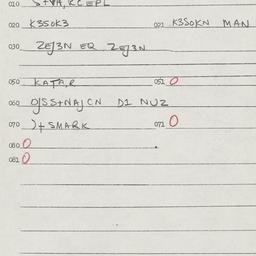 010 S+VA, KCEPL
020 K350K3 021 K350KN MAN
030 ZEJ3N EQ ZEJ3N
050 KATA,R 051 0
060 OJSS+NAJCN D1 NUZ
070 )+ SMARK 071 0
080 0
081 0